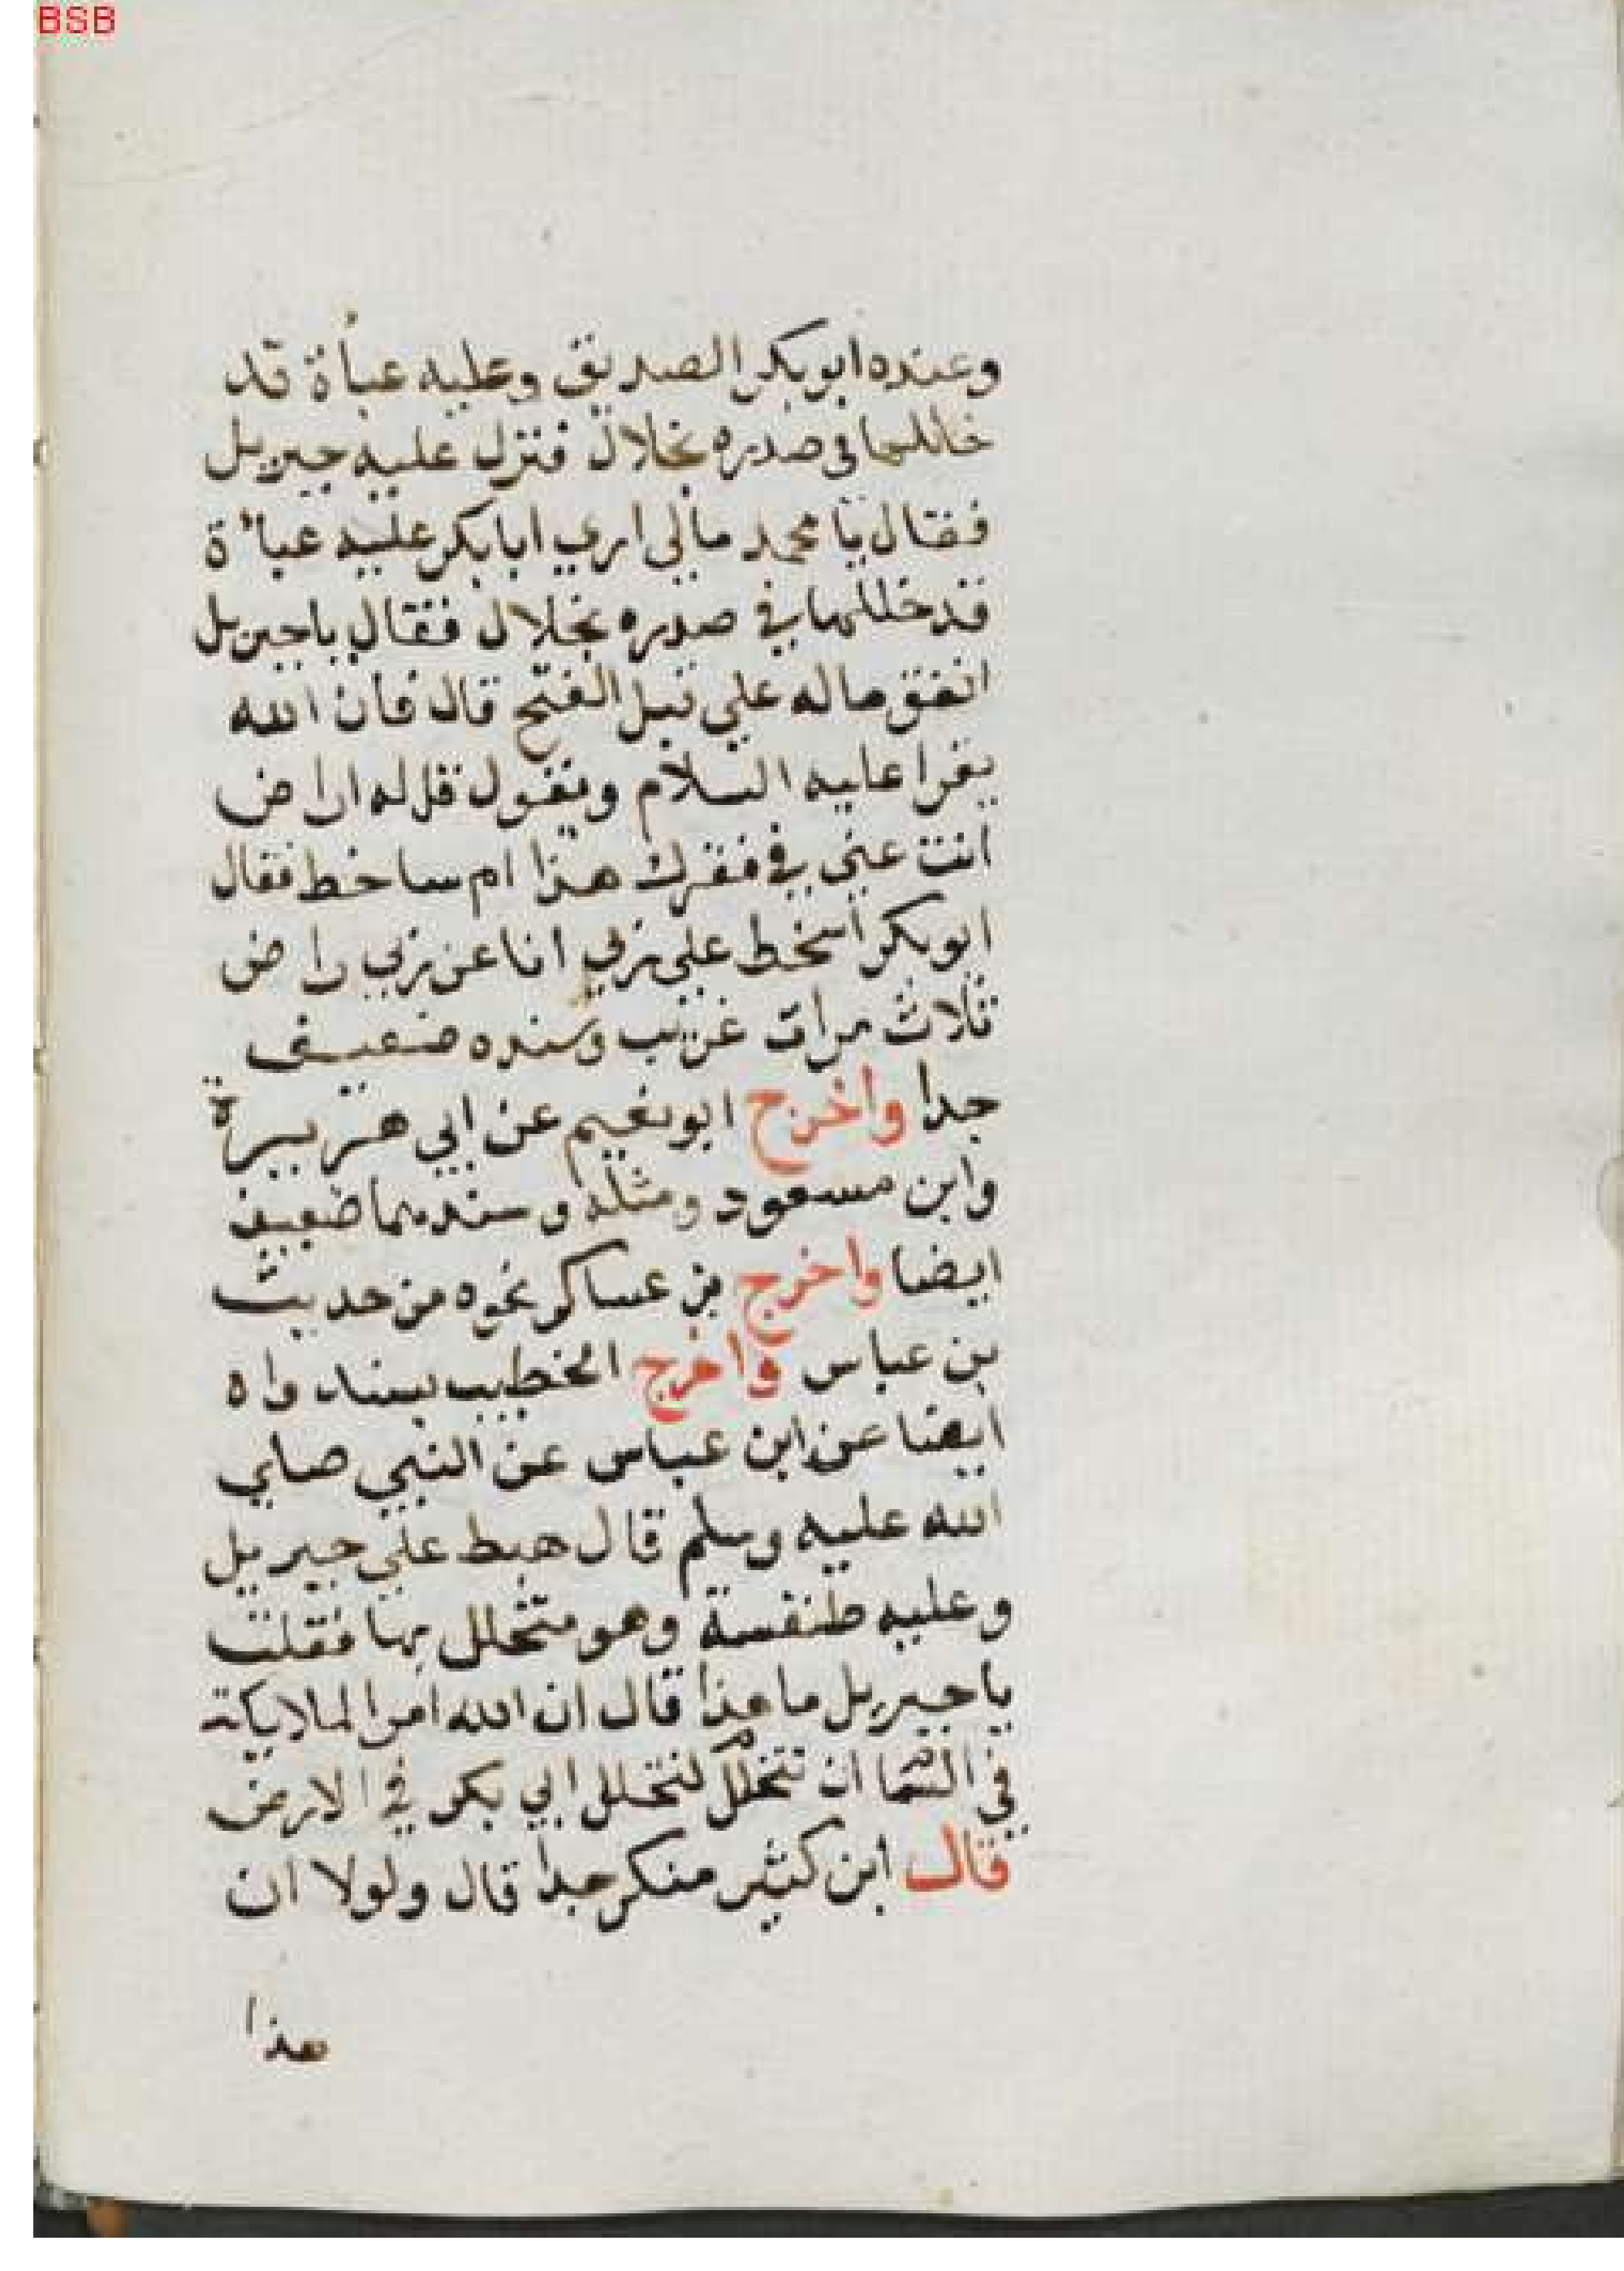 BSB
وعنده ابو بكر الصديق وعليه عبأة قد
خاللها في صدره بخلال فنزل عليه جبريل
فقال يا محمد مالي اري ابا بكر عليه عباءة
قد خللها في صدره بخلال فقال يا جبريل
انفق ماله علي قبل الفتح قال فان الله
يقرا عليه السلام ويقول قل له اراض
انت عني في فقرك هذا ام ساخط فقال
ابو بكر اسخط علي ربي انا عن ربي راض
ثلاث مرات غريب وسنده ضعيف
جدا واخرج ابو نعيم عن ابي هريرة
وابن مسعود ومثله وسندهما ضعيف
ايضا واخرج بن عساكر نحوه من حديث
بن عباس واخرج الخطيب بسند واه
ايضا عن ابن عباس عن النبي صلي
الله عليه وسلم قال هبط علي جبريل
وعليه طنفسة وهو متخلل بها فقلت
يا جبريل ما هذا قال ان الله امر الملايكة
في السما ان تتخلل لتخلل ابي بكر في الارض
قال ابن كثير منكر جدا قال ولولا ان
هذا